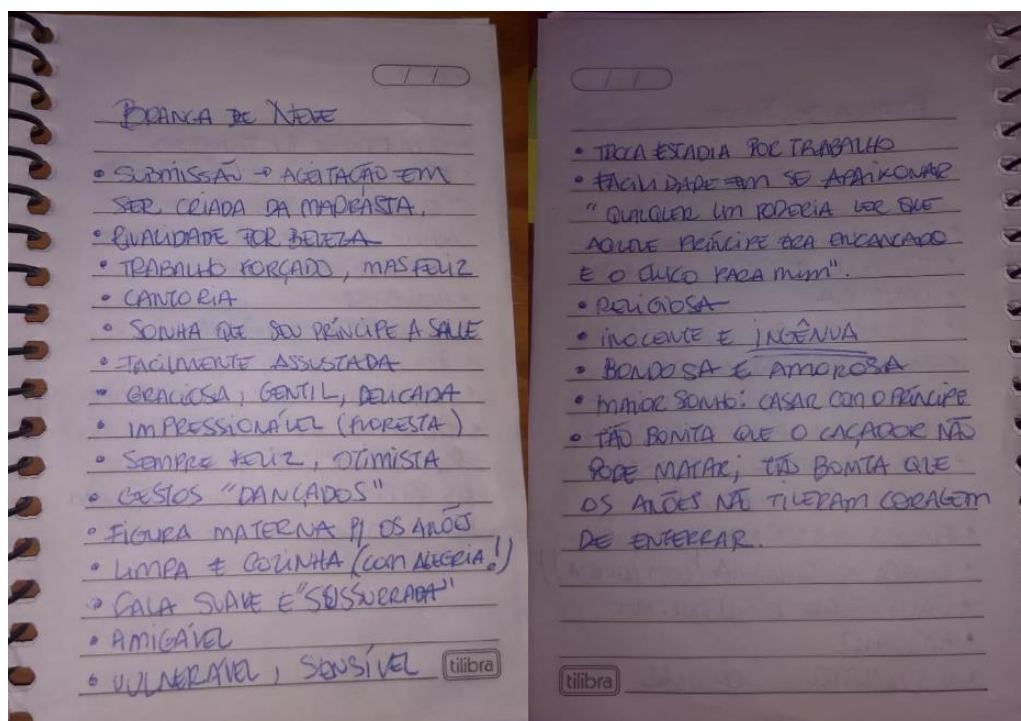 / /
BRANCA DE NEVE
• SUBMISSÃO → ACEITAÇÃO EM
SER CRIADA DA MADRASTA.
• RIVALIDADE POR BELEZA
• TRABALHO FORÇADO, MAS FELIZ
• CANTORIA
• SONHA QUE SEU PRÍNCIPE A SALVE
• FACILMENTE ASSUSTADA
• GRACIOSA, GENTIL, DELICADA
• IMPRESSIONÁVEL (FLORESTA)
• SEMPRE FELIZ, OTIMISTA
• GESTOS "DANÇADOS"
• FIGURA MATERNA P/ OS ANÕES
• LIMPA E COZINHA (COM ALEGRIA!)
• FALA SUAVE E "SUSSURRADA"
• AMIGÁVEL
• VULNERÁVEL, SENSÍVEL
tilibra
/ /
• TROCA ESTADIA POR TRABALHO
• FACILIDADE EM SE APAIXONAR
" QUALQUER UM PODERIA VER QUE
AQUELE PRÍNCIPE ERA ENCANTADO
E O ÚNICO PARA MIM".
• RELIGIOSA
• INOCENTE E INGÊNUA
• BONDOSA E AMOROSA
• MAIOR SONHO: CASAR COM O PRÍNCIPE
• TÃO BONITA QUE O CAÇADOR NÃO
PODE MATAR; TÃO BONITA QUE
OS ANÕES NÃO TIVERAM CORAGEM
DE ENTERRAR.
tilibra